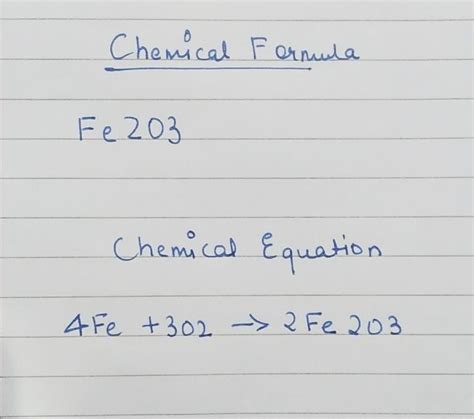 Chemical Formula
Fe2O3
Chemical Equation
4Fe +3O2 → 2Fe2O3